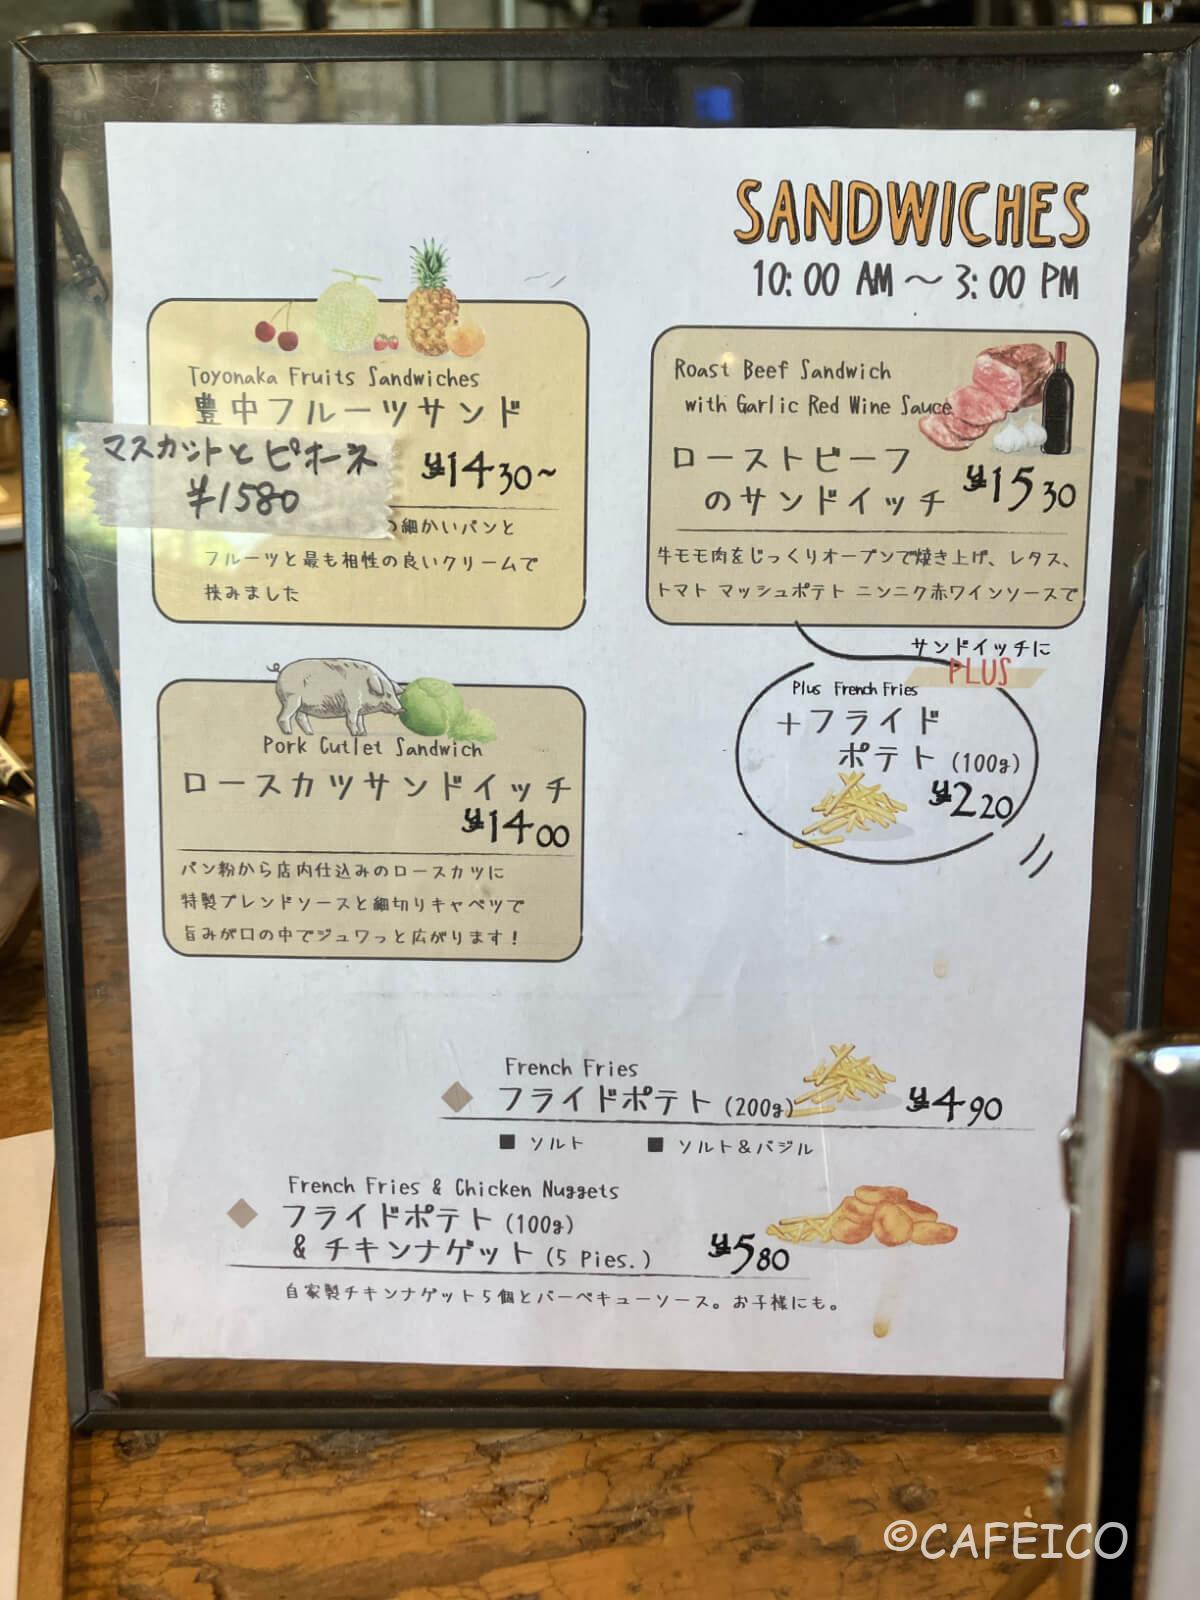 SANDWICHES
10:00 AM〜3:00 PM
Toyonaka Fruits Sandwiches
豊中フルーツサンド
¥1430~
マスカットとピオーネ
¥1580
の細かいパンと
フルーツと最も相性の良いクリームで
挟みました
Roast Beef Sandwich
with Garlic Red Wine Sauce
ローストビーフ
のサンドイッチ
¥1530
牛モモ肉をじっくりオーブンで焼き上げ、レタス、
トマト マッシュポテト ニンニク赤ワインソースで
サンドイッチに
PLUS
Plus French Fries
+フライド
ポテト (100g)
¥220
Pork Cutlet Sandwich
ロースカツサンドイッチ
¥1400
パン粉から店内仕込みのロースカツに
特製ブレンドソースと細切りキャベツで
旨みが口の中でジュワっと広がります!
French Fries
フライドポテト (200g) ¥490
■ ソルト ■ ソルト&バジル
French Fries & Chicken Nuggets
フライドポテト (100g)
& チキンナゲット (5 Pies.) ¥580
自家製チキンナゲット5個とバーベキューソース。お子様にも。
©CAFEICO